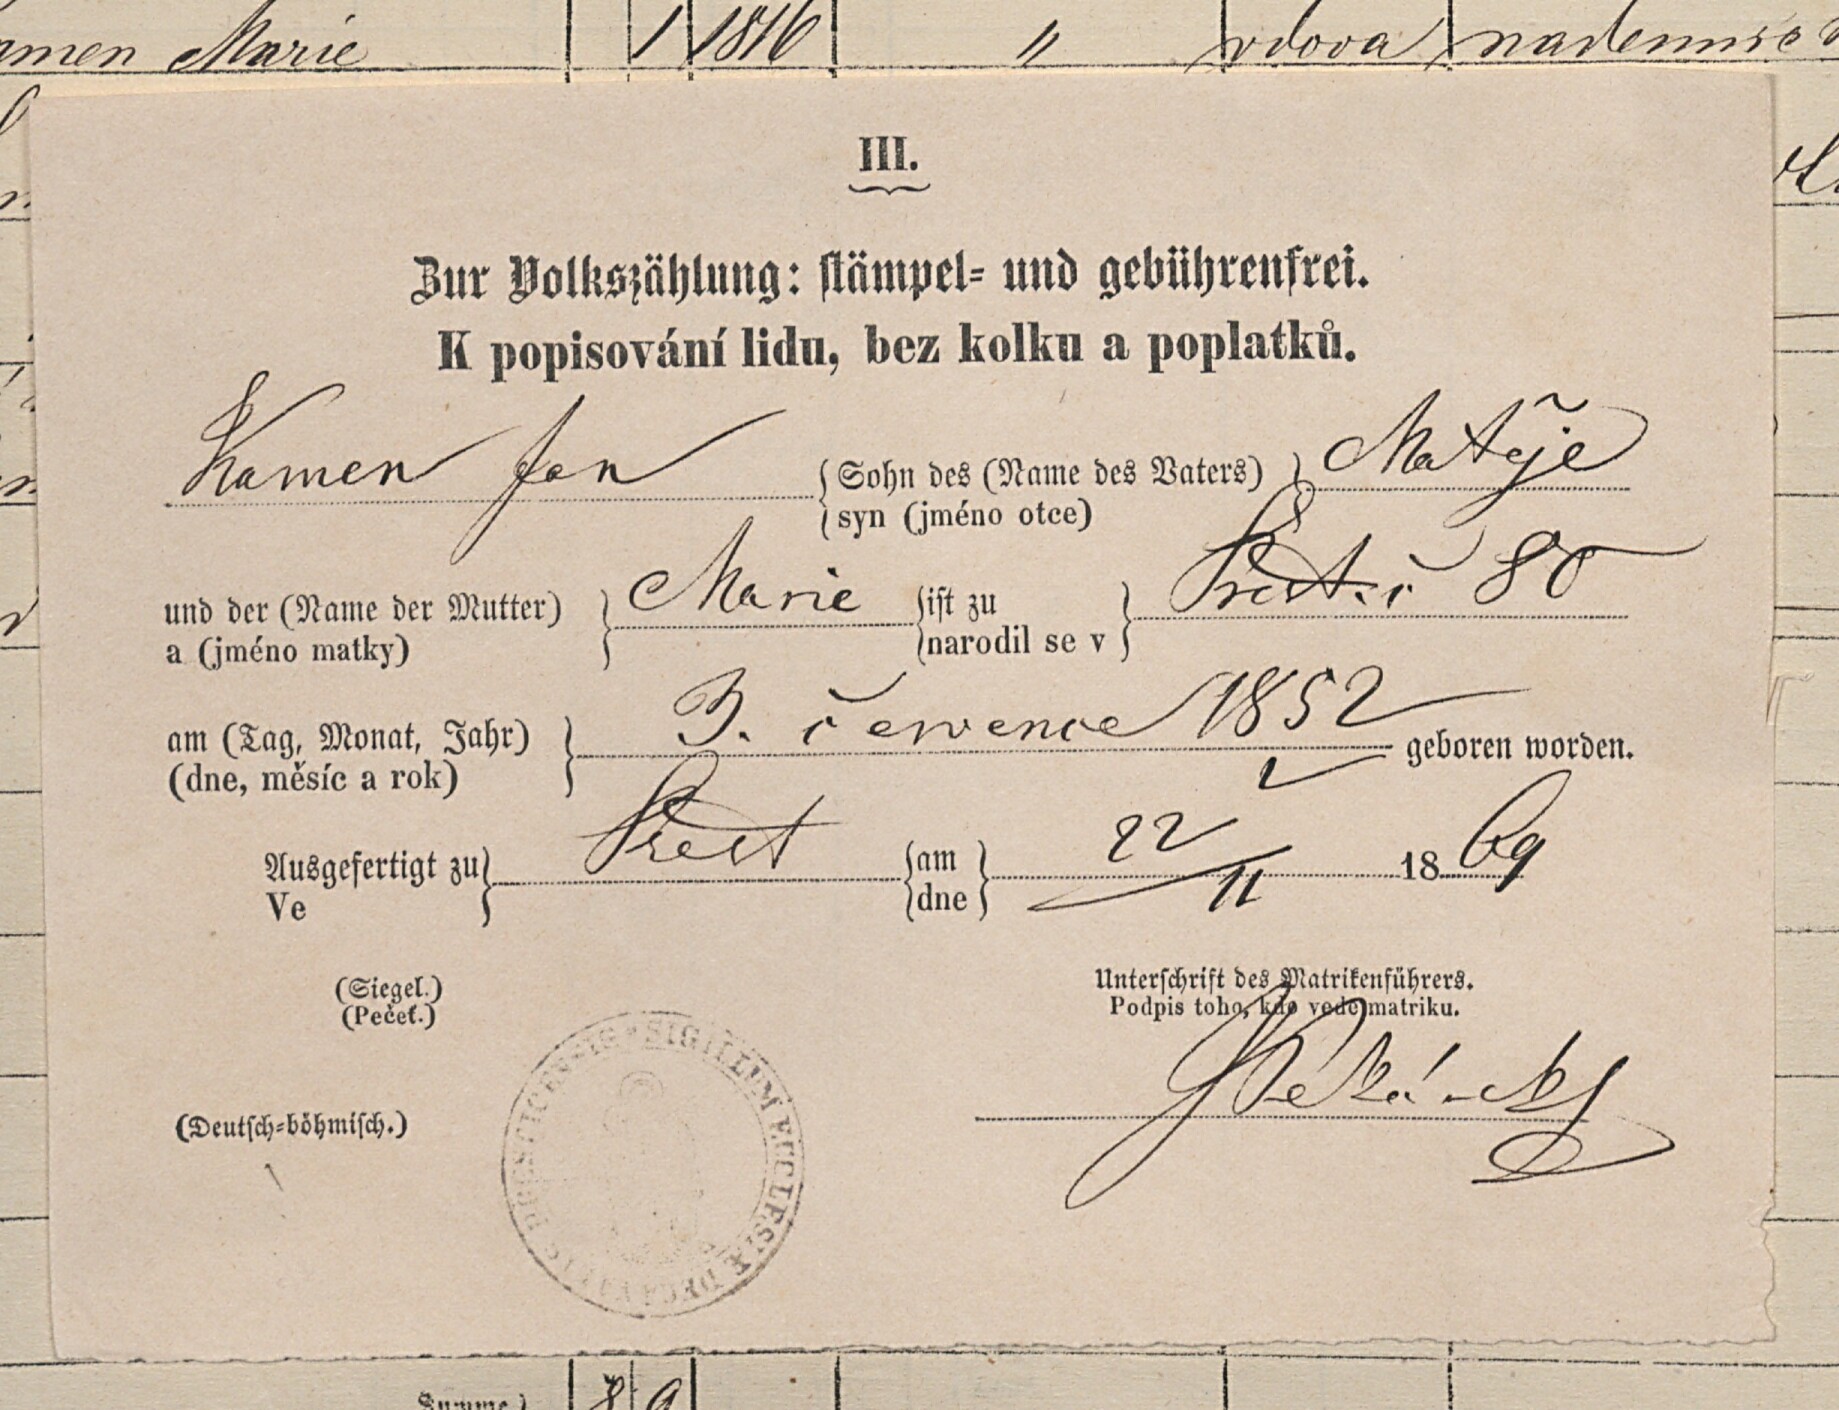 amen Marie 1 1816 " vdova nadennice
III.
Zur Volkszählung: stämpel= und gebührenfrei.
K popisování lidu, bez kolku a poplatků.
Kamen Jan Sohn des (Name des Vaters) Matěje
syn (jméno otce)
und der (Name der Mutter) Marie ist zu Přešt. č 80
a (jméno matky) narodil se v
am (Tag, Monat, Jahr) 3. července 1852 geboren worden.
(dne, měsíc a rok)
Ausgefertigt zu Přešt am 22/11 1869
Ve dne
(Siegel.) Unterschrift des Matrikenführers.
(Pečeť.) Podpis toho, kdo vede matriku.
SIGILLUM ECCLESIÆ
(Deutsch=böhmisch.)
Summe 8 9